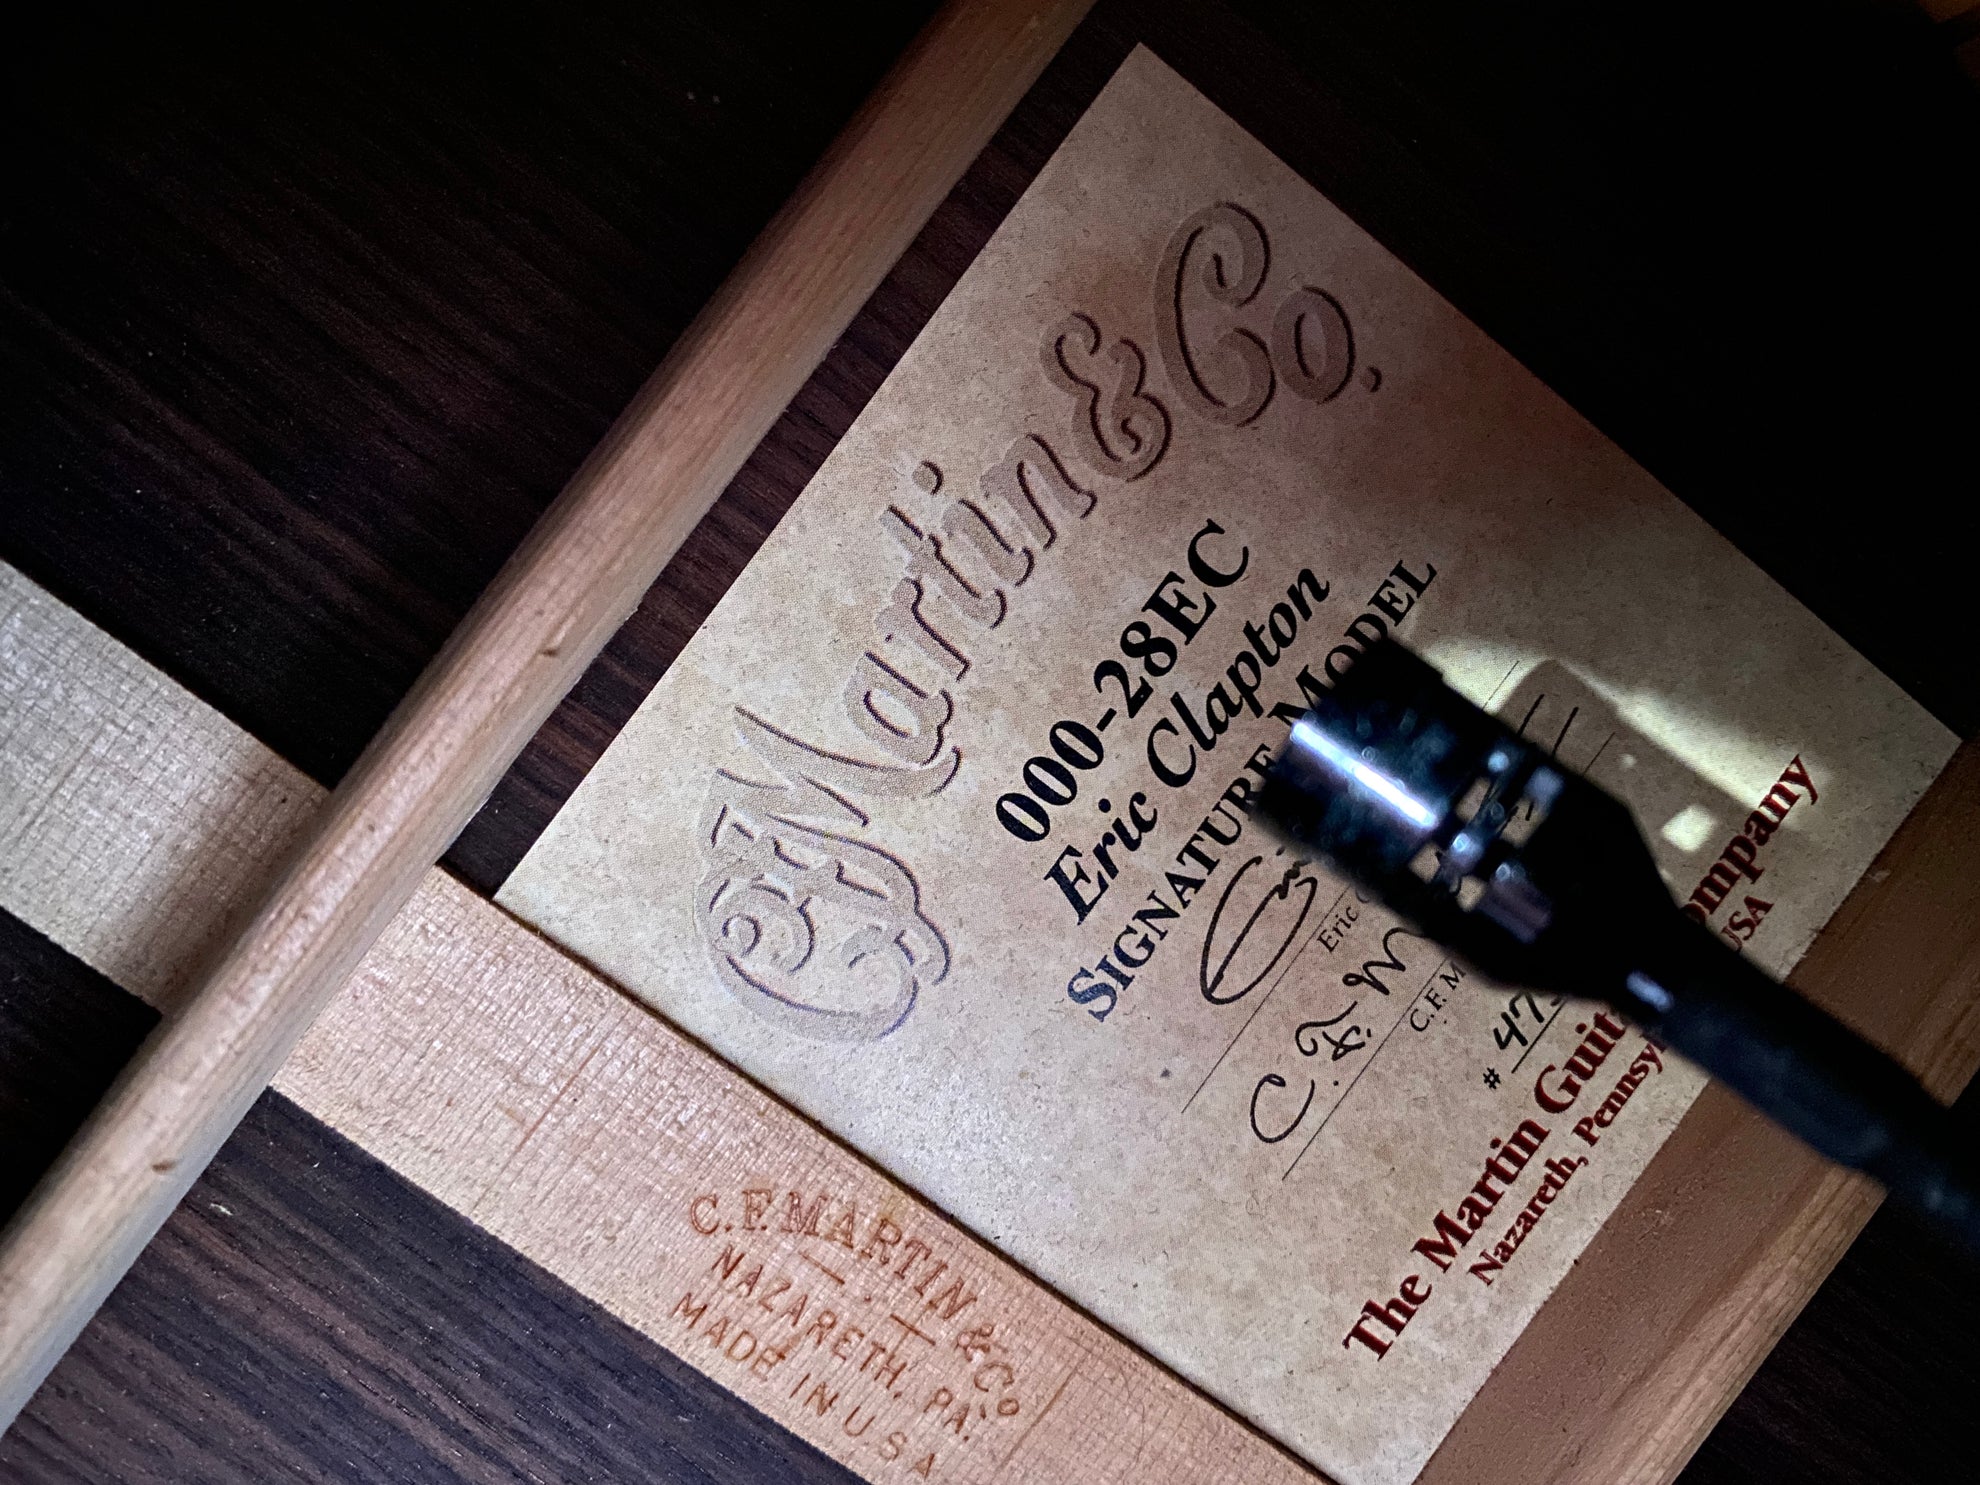 Martin & Co.
000-28EC
Eric Clapton
SIGNATURE MODEL
Eric
C. F. M
C. F. M
# 47
The Martin Guit ompany
Nazareth, Pennsyl USA
C. F. MARTIN & Co
NAZARETH, PA.
MADE IN U.S.A